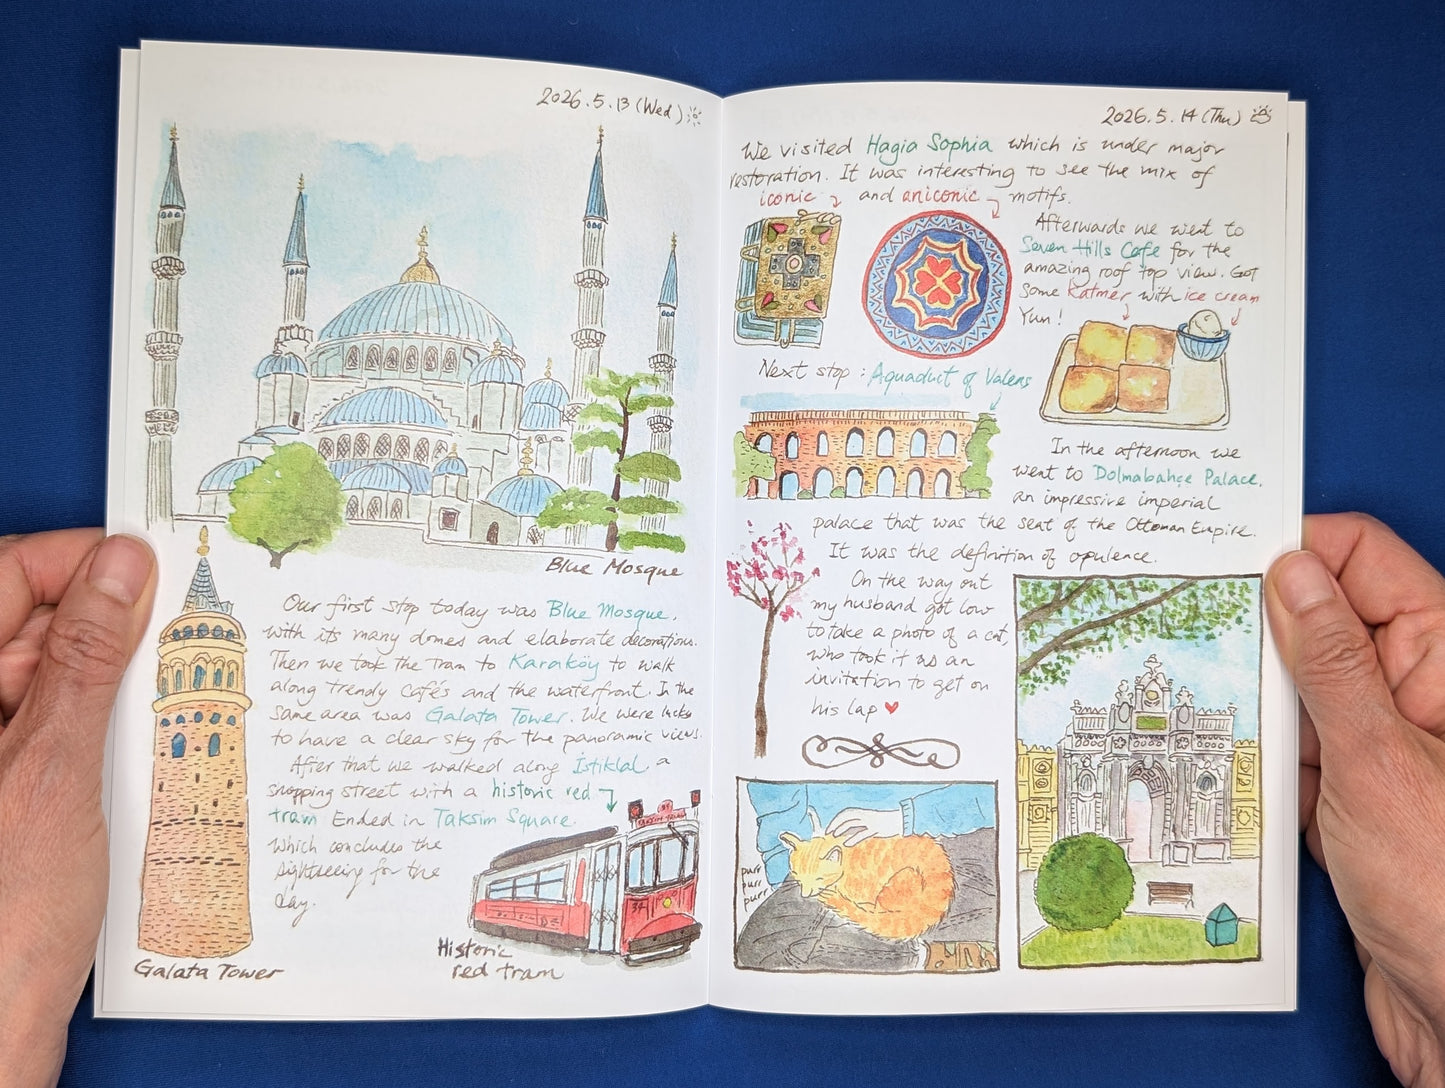 2026.5.13 (Wed)
Blue Mosque
Our first stop today was Blue Mosque,
with its many domes and elaborate decorations.
Then we took the tram to Karaköy to walk
along trendy cafés and the waterfront. In the
same area was Galata Tower. We were lucky
to have a clear sky for the panoramic views.
After that we walked along İstiklal, a
shopping street with a historic red
tram Ended in Taksim Square.
which concludes the
sightseeing for the
day.
TAKSİM TÜNEL
34
Galata Tower
Historic
red tram
2026.5.14 (Thu)
We visited Hagia Sophia which is under major
restoration. It was interesting to see the mix of
iconic and aniconic motifs.
Afterwards we went to
Seven Hills Cafe for the
amazing roof top view. Got
some Katmer with ice cream
Yum!
Next stop: Aquaduct of Valens
In the afternoon we
went to Dolmabahçe Palace,
an impressive imperial
palace that was the seat of the Ottoman Empire.
It was the definition of opulence.
On the way out
my husband got low
to take a photo of a cat,
who took it as an
invitation to get on
his lap ♥
purr
purr
purr